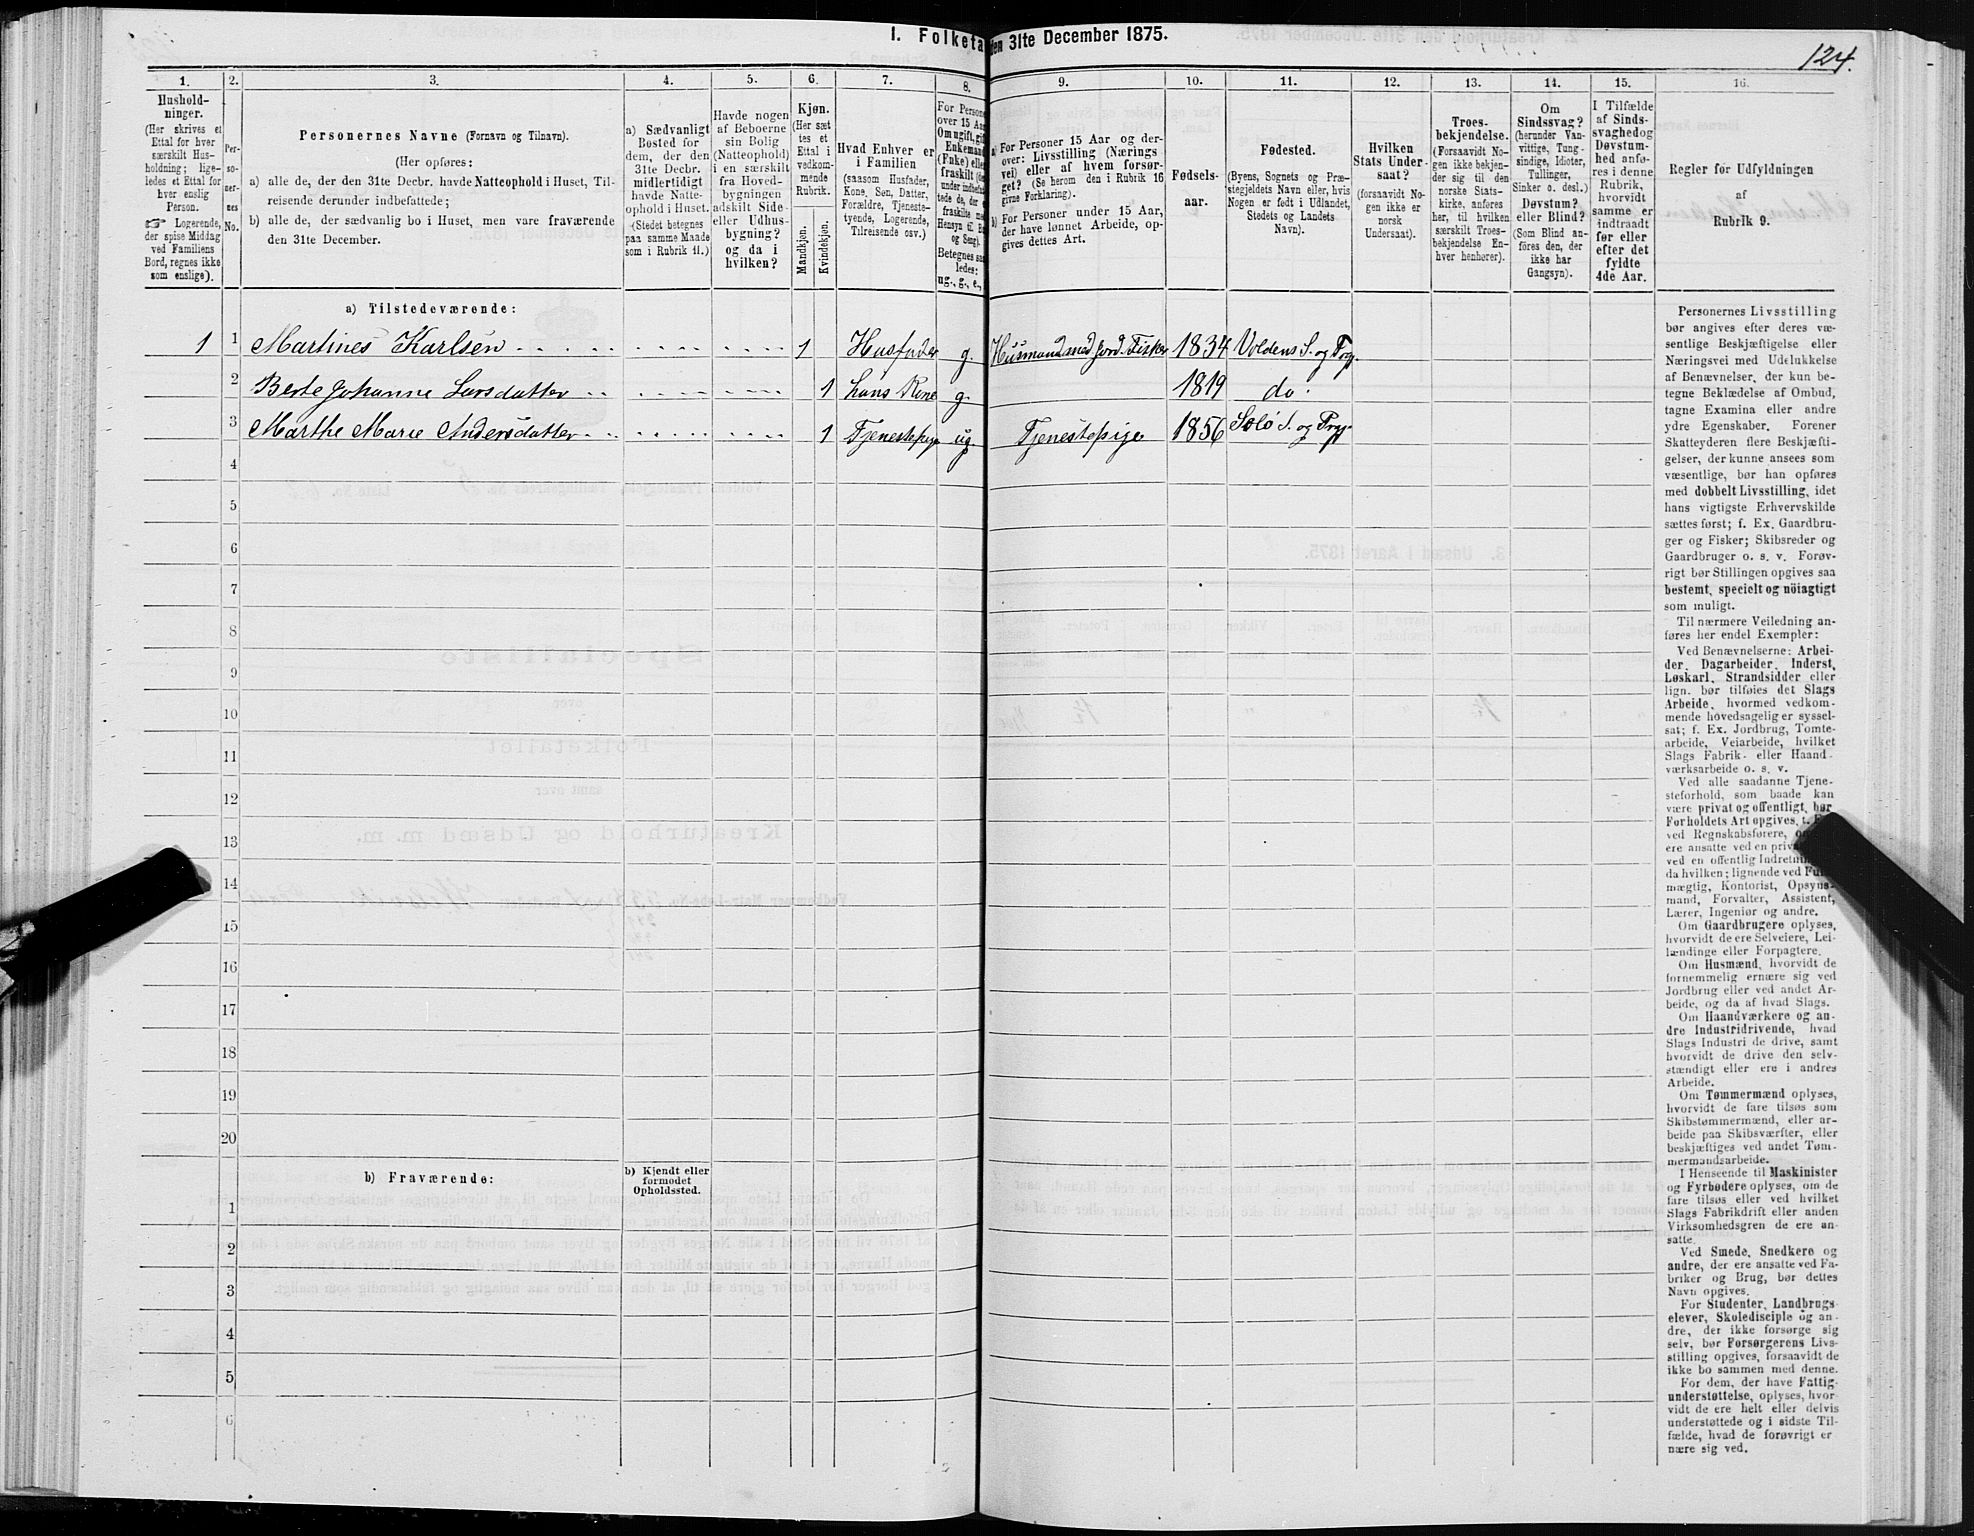 I. Folketa den 31te December 1875.
124.
1.
2.
3.
4.
5.
6.
7.
8.
9.
10.
11.
12.
13.
14.
15.
16.
Hushold-
ninger.
(Her skrives et
Ettal for hver
særskilt Hus-
holdning; lige-
ledes et Ettal for
hver enslig
Person.
☞ Logerende,
der spise Middag
ved Familiens
Bord, regnes ikke
som enslige).
Per-
so-
ner-
nes
No.
Personernes Navne (Fornavn og Tilnavn).
(Her opføres:
a) alle de, der den 31te Decbr. havde Natteophold i Huset, Til-
reisende derunder indbefattede;
b) alle de, der sædvanlig bo i Huset, men vare fraværende
den 31te December.
a) Sædvanligt
Bosted for
dem, der den
31te Decbr.
midlertidigt
havde Natte-
ophold i Huset.
(Stedet betegnes
paa samme Maade
som i Rubrik 11.)
Havde nogen
af Beboerne
sin Bolig
(Natteophold)
i en særskilt
fra Hoved-
bygningen
adskilt Side-
eller Udhus-
bygning?
og da i
hvilken?
Kjøn.
(Her sæt
tes et
Ettal i
vedkom-
mende
Rubrik.
Mandkjøn.
Kvindekjøn.
Hvad Enhver er
i Familien
(saasom Husfader,
Kone, Søn, Datter,
Forældre, Tjeneste-
tyende, Logerende,
Tilreisende osv.)
For Persone
over 15 Aa
Om ugift, gif
Enkeman
(Fnke) elle
fraskilt
Betegnes saa
ledes:
ug., g., e.,
a) For Personer 15 Aar og der-
over: Livsstilling (Nærings
vei) eller af hvem forsør-
get? (Se herom den i Rubrik 16
givne Forklaring).
b) For Personer under 15 Aar,
der have lønnet Arbeide, op-
gives dettes Art.
Fødsels-
aar.
Fødested.
(Byens, Sognets og Præ-
stegjeldets Navn eller, hvis
Nogen er født i Udlandet,
Stedets og Landets
Navn).
Hvilken
Stats Under-
saat?
(forsaavidt No-
gen ikke er
norsk
Undersaat).
Troes-
bekjendelse.
(Forsaavidt No-
gen ikke bekjen-
der sig til den
norske Stats-
kirke, anføres
her, til hvilken
særskilt Troes-
bekjendelse En-
hver henhører).
Om
Sindssvag?
(herunder Van-
vittige, Tung-
sindige, Idioter,
Tullinger,
Sinker o. desl.)
Døvstum?
eller Blind?
(Som Blind an-
føres den, der
ikke har
Gangsyn).
I Tilfælde
af Sinds-
svaghed og
Døvstum-
hed anfø-
res i denne
Rubrik,
hvorvidt
samme er
indtraadt
før eller
efter det
fyldte
4de Aar.
Regler for Udfyldningen
af
Rubrik 9.
a) Tilstedeværende:
1 1 Martines Karlsen 1 Husfader g. Husmand med Jord. Fisker 1834 Voldens S. og Prgj.
2 Berte Johanne Larsdatter 1 hans Kone g. 1819 do.
3 Marthe Marie Andersdatter 1 Tjenestepige ug Tjenestepige 1856 S. og Prgj.
4
5
6
7
8
9
10
11
12
13
14
15
16
17
18
19
20
b) Fraværende:
b) Kjendt eller
formodet
Opholdssted.
1
2
3
4
5
6
Personernes Livsstilling
bør angives efter deres væ-
sentlige Beskjæftigelse eller
Næringsvei med Udelukkelse
af Benævnelser, der kun be-
tegne Beklædelse af Ombud,
tagne Examina eller andre
ydre Egenskaber. Forener
Skatteyderen flere Beskjæfti-
gelser, der kunne ansees som
væsentlige, bør han opføres
med dobbelt Livsstilling, idet
hans vigtigste Erhvervskilde
sættes først; f. Ex. Gaardbru-
ger og Fisker; Skibsreder og
Gaardbruger o. s. v. Forøv-
rigt bør Stillingen opgives saa
bestemt, specielt og nöiagtigt
som muligt.
Til nærmere Veiledning an-
føres her endel Exempler:
Ved Benævnelserne: Arbei-
der, Dagarbeider, Inderst,
Løskarl, Strandsidder eller
lign. bør tilføies det Slags
Arbeide, hvormed vedkom-
mende hovedsagelig er syssel-
sat; f. Ex. Jordbrug, Tomte-
arbeide, Veiarbeide, hvilket
Slags Fabrik- eller Haand-
værksarbeide o. s. v.
Ved alle saadanne Tjene-
steforhold, som baade kan
være privat og offentligt, bør
Forholdets Art opgives, t.
ved Regnskabsførere,
ere ansatte ved en
ved en offentlig
da hvilken; lignende ved
mægtig, Kontorist, Opsyns-
mand, Forvalter, Assistent,
Lærer, Ingeniør og andre.
Om Gaardbrugere oplyses,
hvorvidt de ere Selveiere, Lei-
lændinge eller Forpagtere.
Om Husmænd, hvorvidt de
fornemmelig ernære sig ved
Jordbrug eller ved andet Ar-
beide, og da af hvad Slags.
Om Haandværkere og an-
dre Industridrivende, hvad
Slags Industri de drive, samt
hvorvidt de drive den selv-
stændigt eller ere i andres
Arbeide.
Om Tømmermænd oplyses,
hvorvidt de fare tilsøs som
Skibstømmermænd, eller ar-
beide paa Skibsværfter, eller
beskjæftiges ved andet Tøm-
mermandsarbeide.
I Henseende til Maskinister
og Fyrbødere oplyses, om de
fare tilsøs eller ved hvilket
Slags Fabrikdrift eller anden
Virksomhedsgren de ere an-
satte.
Ved Smede, Snedkere og
andre, der ere ansatte ved Fa-
briker og Brug, bør dettes
Navn opgives.
For Studenter, Landbrugs
elever, Skoledisciple og an-
dre, der ikke forsørge sig
selv, bør Forsørgerens Livs-
stilling opgives, forsaavidt de
ikke bo sammen med denne.
For dem, der have Fattig-
understøttelse, oplyses, hvor-
vidt de ere helt eller delvis
understøttede og i sidste Til-
fælde, hvad de forøvrigt er
nære sig ved.